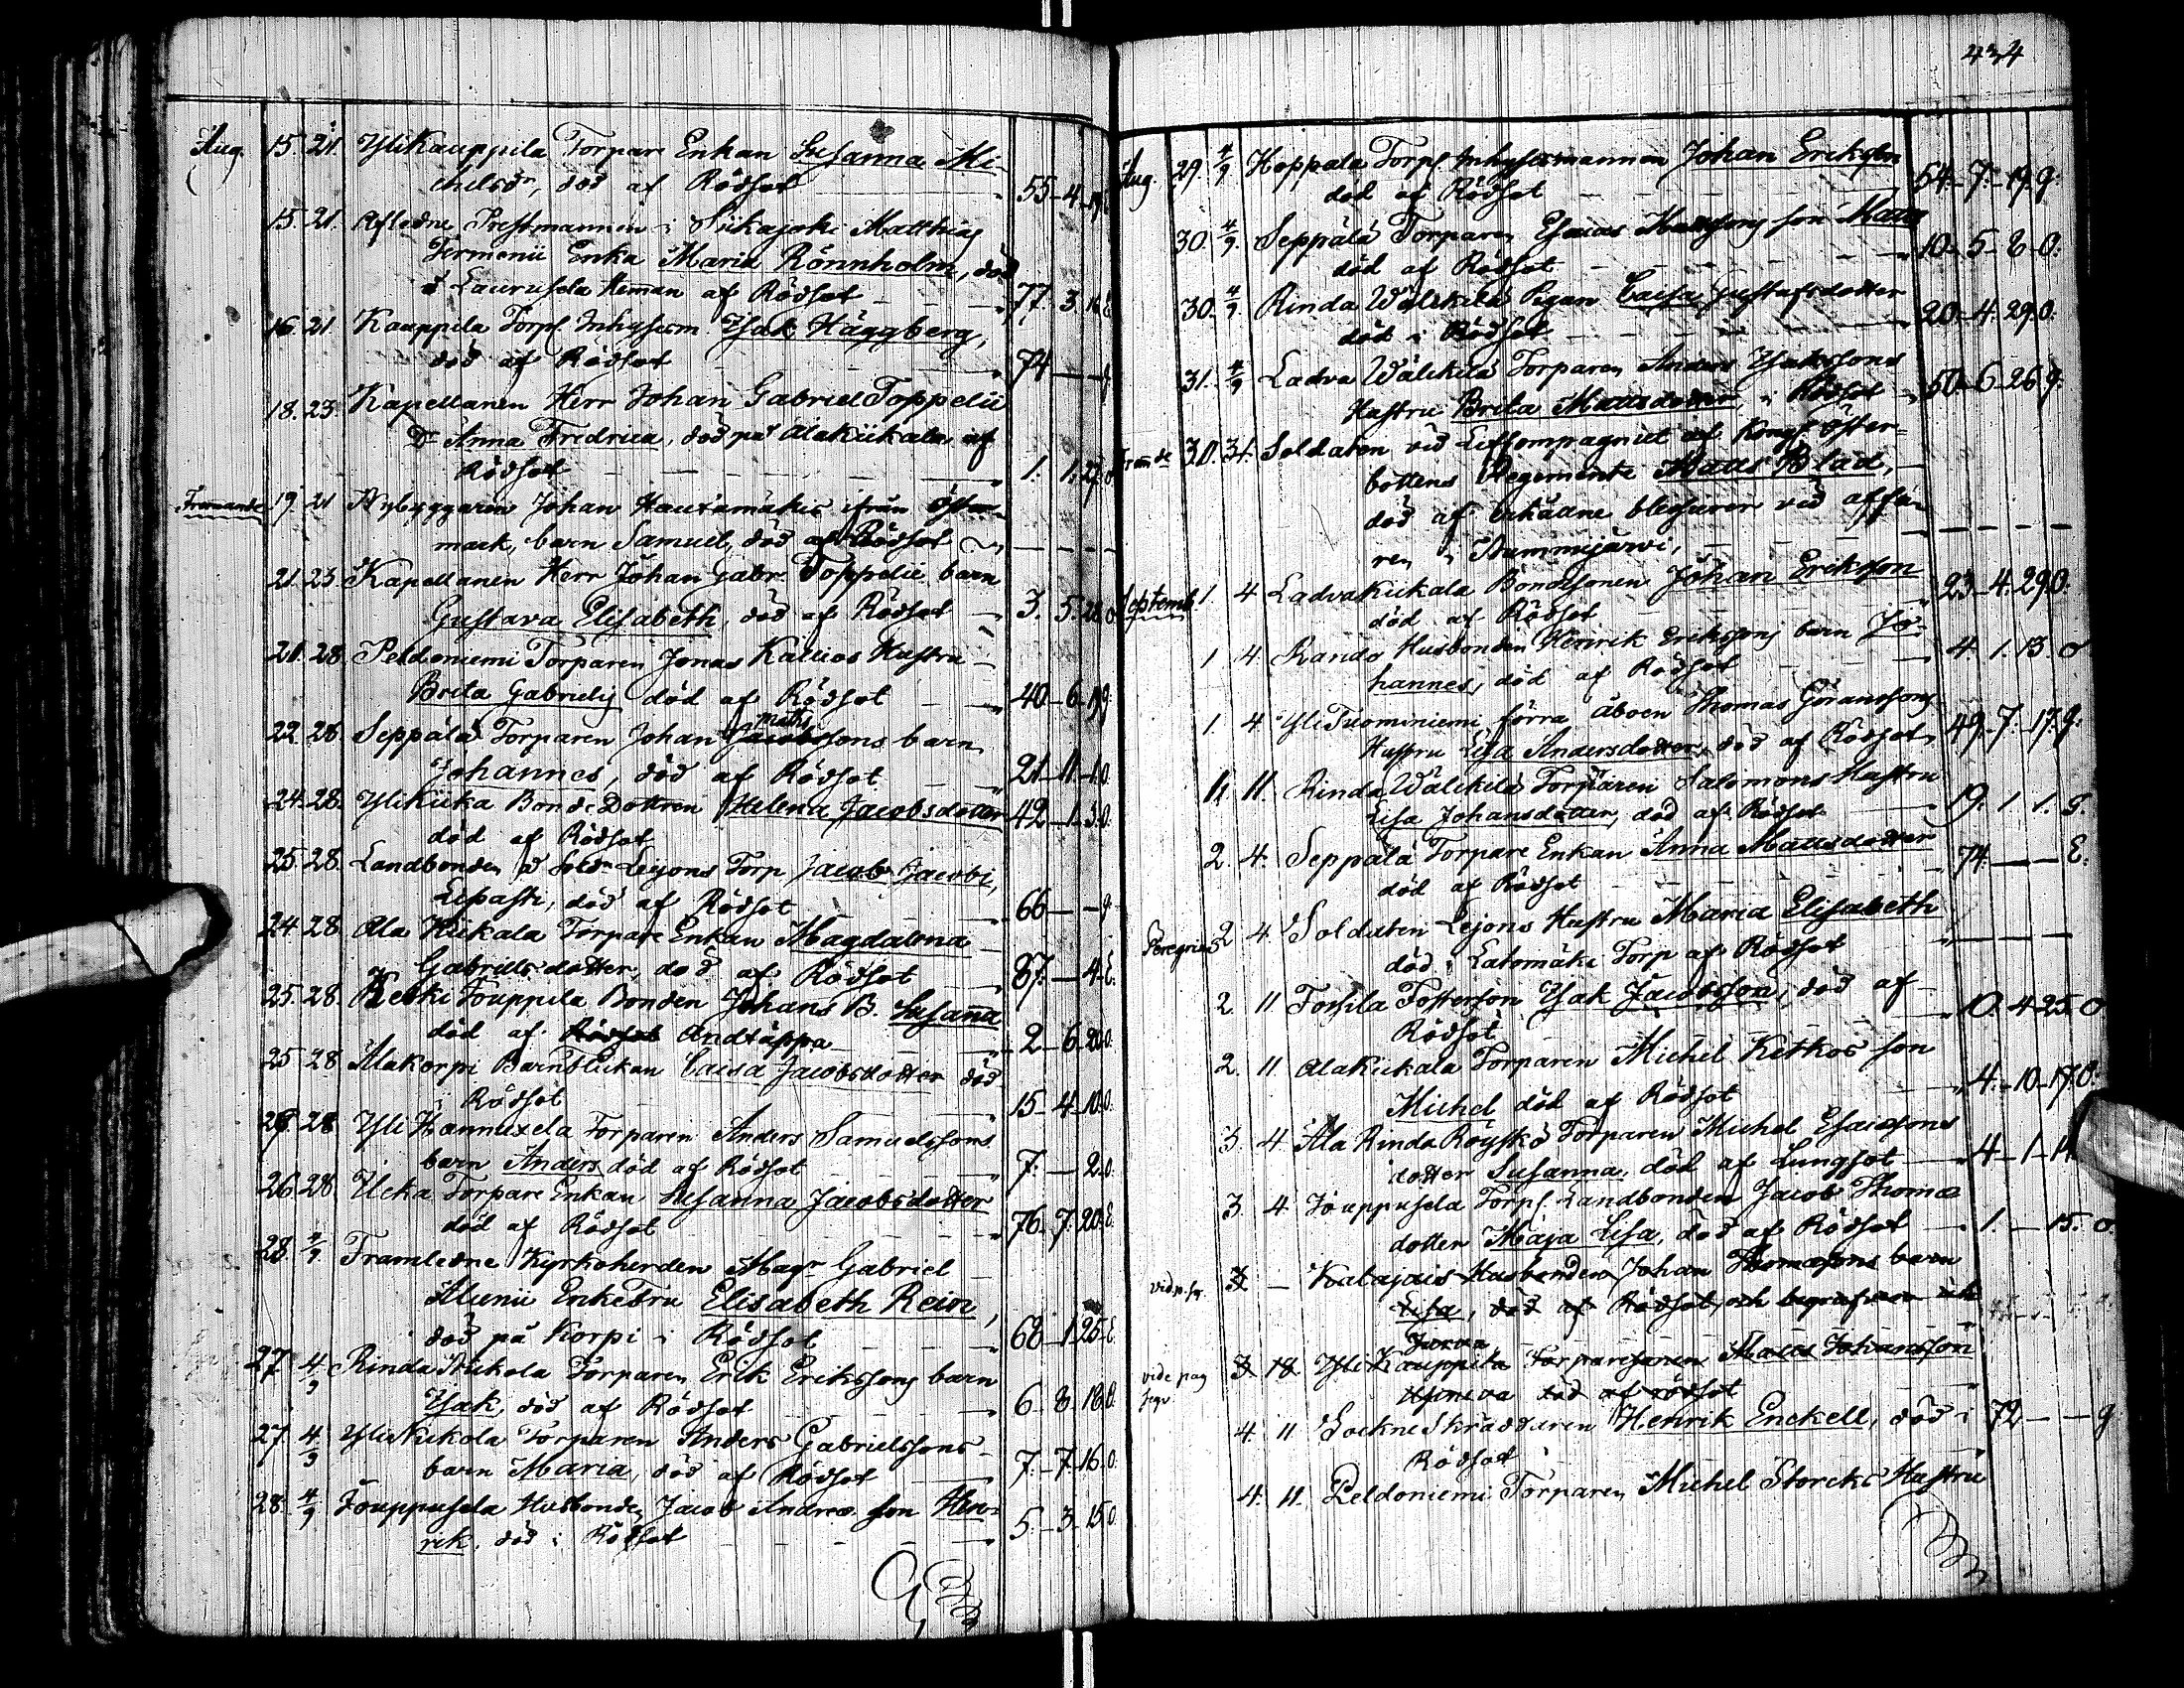 Aug. 15. 21. Yli Kauppila Torpare Enkan Susanna Mi-
chelsdr, död af Rödsot 55-4-19
15. 21. Afledne Prestmannen i Siikajoki Matthias
Fermenii Enka Maria Rönnholm, död
å Laurusela Heman af Rödsot 77. 3. 16. E.
16. 21 Kauppila Torp. Inhyses m. Isak Häggberg,
död af Rödsot 74
18. 23. Kapellanen Herr Johan Gabriel Toppelii
Dr Anna Fredrica, död på Alakiikala af
Rödsot 1. 1. 27. o
Fremande 19. 21 Nybyggaren Johan Hautamäkis ifrån Öster-
mark, barn Samuel, död af Rödsot
21. 23. Kapellanen Herr Johan Gabr. Toppelii barn
Gustava Elisabeth, död af Rödsot 3. 5. 28. o
21. 28. Peldoniemi Torparen Jonas Kallios Hustru
Brita Gabriels död af Rödsot 40-6-19 g
matts
22. 28. Seppälä Torparen Johan Jacobssons barn
Johannes, död af Rödsot 21-11-1. o.
24. 28. Ylikiika Bonde Dottren Helena Jacobsdotter 42-1-3. o.
död af Rödsot
25. 28. Landbonden å Soldn Leijons Torp Jacob Jacobi,
Lepasti, död af Rödsot 66 - - g.
24. 28. Ala Kiikala Torpare Enkan Magdalena
Gabrielsdotter, död af Rödsot 87. - 4. E.
25. 28. Keski Jouppila Bonden Johans B. Susanna
död af Rödsot Andtäppa 2-6-20. o.
25 28 Alakorpi Barnflickan Caisa Jacobsdotter död
i Rödsot 15-4-10. o.
28 Yli Hannuxela Torparen Anders Samuelssons
barn Anders död af Rödsot 7. - 2. o.
26. 28 Ucka Torpare Enkan Susanna Jacobsdotter
död af Rödsot 76. 7. 20. E.
28. 4/9 Framledne Kyrkoherden Magr Gabriel
Alunii Enkefru Elisabeth Rein,
död på Korpi i Rödsot 68-1-25. E
27 4/9 Rinda Nikola Torparen Erik Erikssons barn
Isak, död af Rödsot 6. 8. 18. o.
27. 4/9 Yli Nikola Torparen Anders Gabrielssons
barn Maria, död af Rödsot 7. - 7. 16. o.
28. 4/9 Jouppusela Husbonden Jacob Andræ son Hen-
rik, död i Rödsot 5. - 3. 15. o.
434
Aug. 29. 4/9 Hoppala Torp. Inhysesmannen Johan Eriksson
död af Rödsot 54. - 7. - 19. g.
30. 4/9. Seppälä Torparen Esaias Mattssons son Matts
död af Rödsot 10 - 5 - 8 - o.
30. 4/9 Rinda Wälikilä Pigan Caisa Gustafsdotter
död i Rödsot 20. - 4. 29. o.
31. 4/9 Ladva Wälikilä Torparen Anders Isakssons
Hustru Brita Mattsdotter, i Rödsot 50-6-26 g.
Främde 30. 31. Soldaten vid Lifcompagniet af Kongl Öster-
bottens Regemente Matts Bläd,
död af erhådne blessurer vid affä-
ren i Alummejärvi,
Septemb. 1. 4 Ladvakiikala Bondesonen Johan Eriksson 23-4-29. o.
död af Rödsot
1 4. Rando Husbonden Henrik Erikssons barn Jo-
hannes, död af Rödsot 4. 1. 13. o
1. 4 Yli Tuominiemi förra åboen Thomas Göranssons
Hustru Lisa Andersdotter, död af Rödsot 49. 7. 17. g.
11 11. Rinda Wälikilä Torparen Salomons Hustru
Lisa Johansdotter, död af Rödsot 19. 1. 1. G.
2. 4. Seppälä Torpare Enkan Anna Mattsdotter
död af Rödsot 74. - - E.
Peregrina 2 4. Soldaten Lejons Hustru Maria Elisabeth
död i Latomäki Torp af Rödsot
2. 11 Torsila Fosterson Isak Jacobsson, död af
Rödsot 10. 4. 25. o
2. 11 Alakiikala Torparen Michel Ketkos son
Michel död af Rödsot 4. - 10 - 17. o.
3. 4 Ala Rinda Röyskö Torparen Michel Esaiæsons
dotter Susanna, död af Lungsot 4 - 1 -
3. 4 Jouppusela Torp. Landbonden Jacob Thomæ
dotter Maja Lisa, död af Rödsot 1. - 15. o.
vid. p. sq. 3 - Katajais Husbonden Johan Thomæsons barn
Lisa, död af Rödsot, och begrafven uti
Jurva
vide pag seqv. 3 18 Yli Kauppila Torparesonen Matts Johansson
död af rödsot
4. 11 Sockne Skräddaren Henrik Enckell, död i 72 - - g
Rödsot
4. 11. Peldoniemi Torparen Michel Storcks Hustru